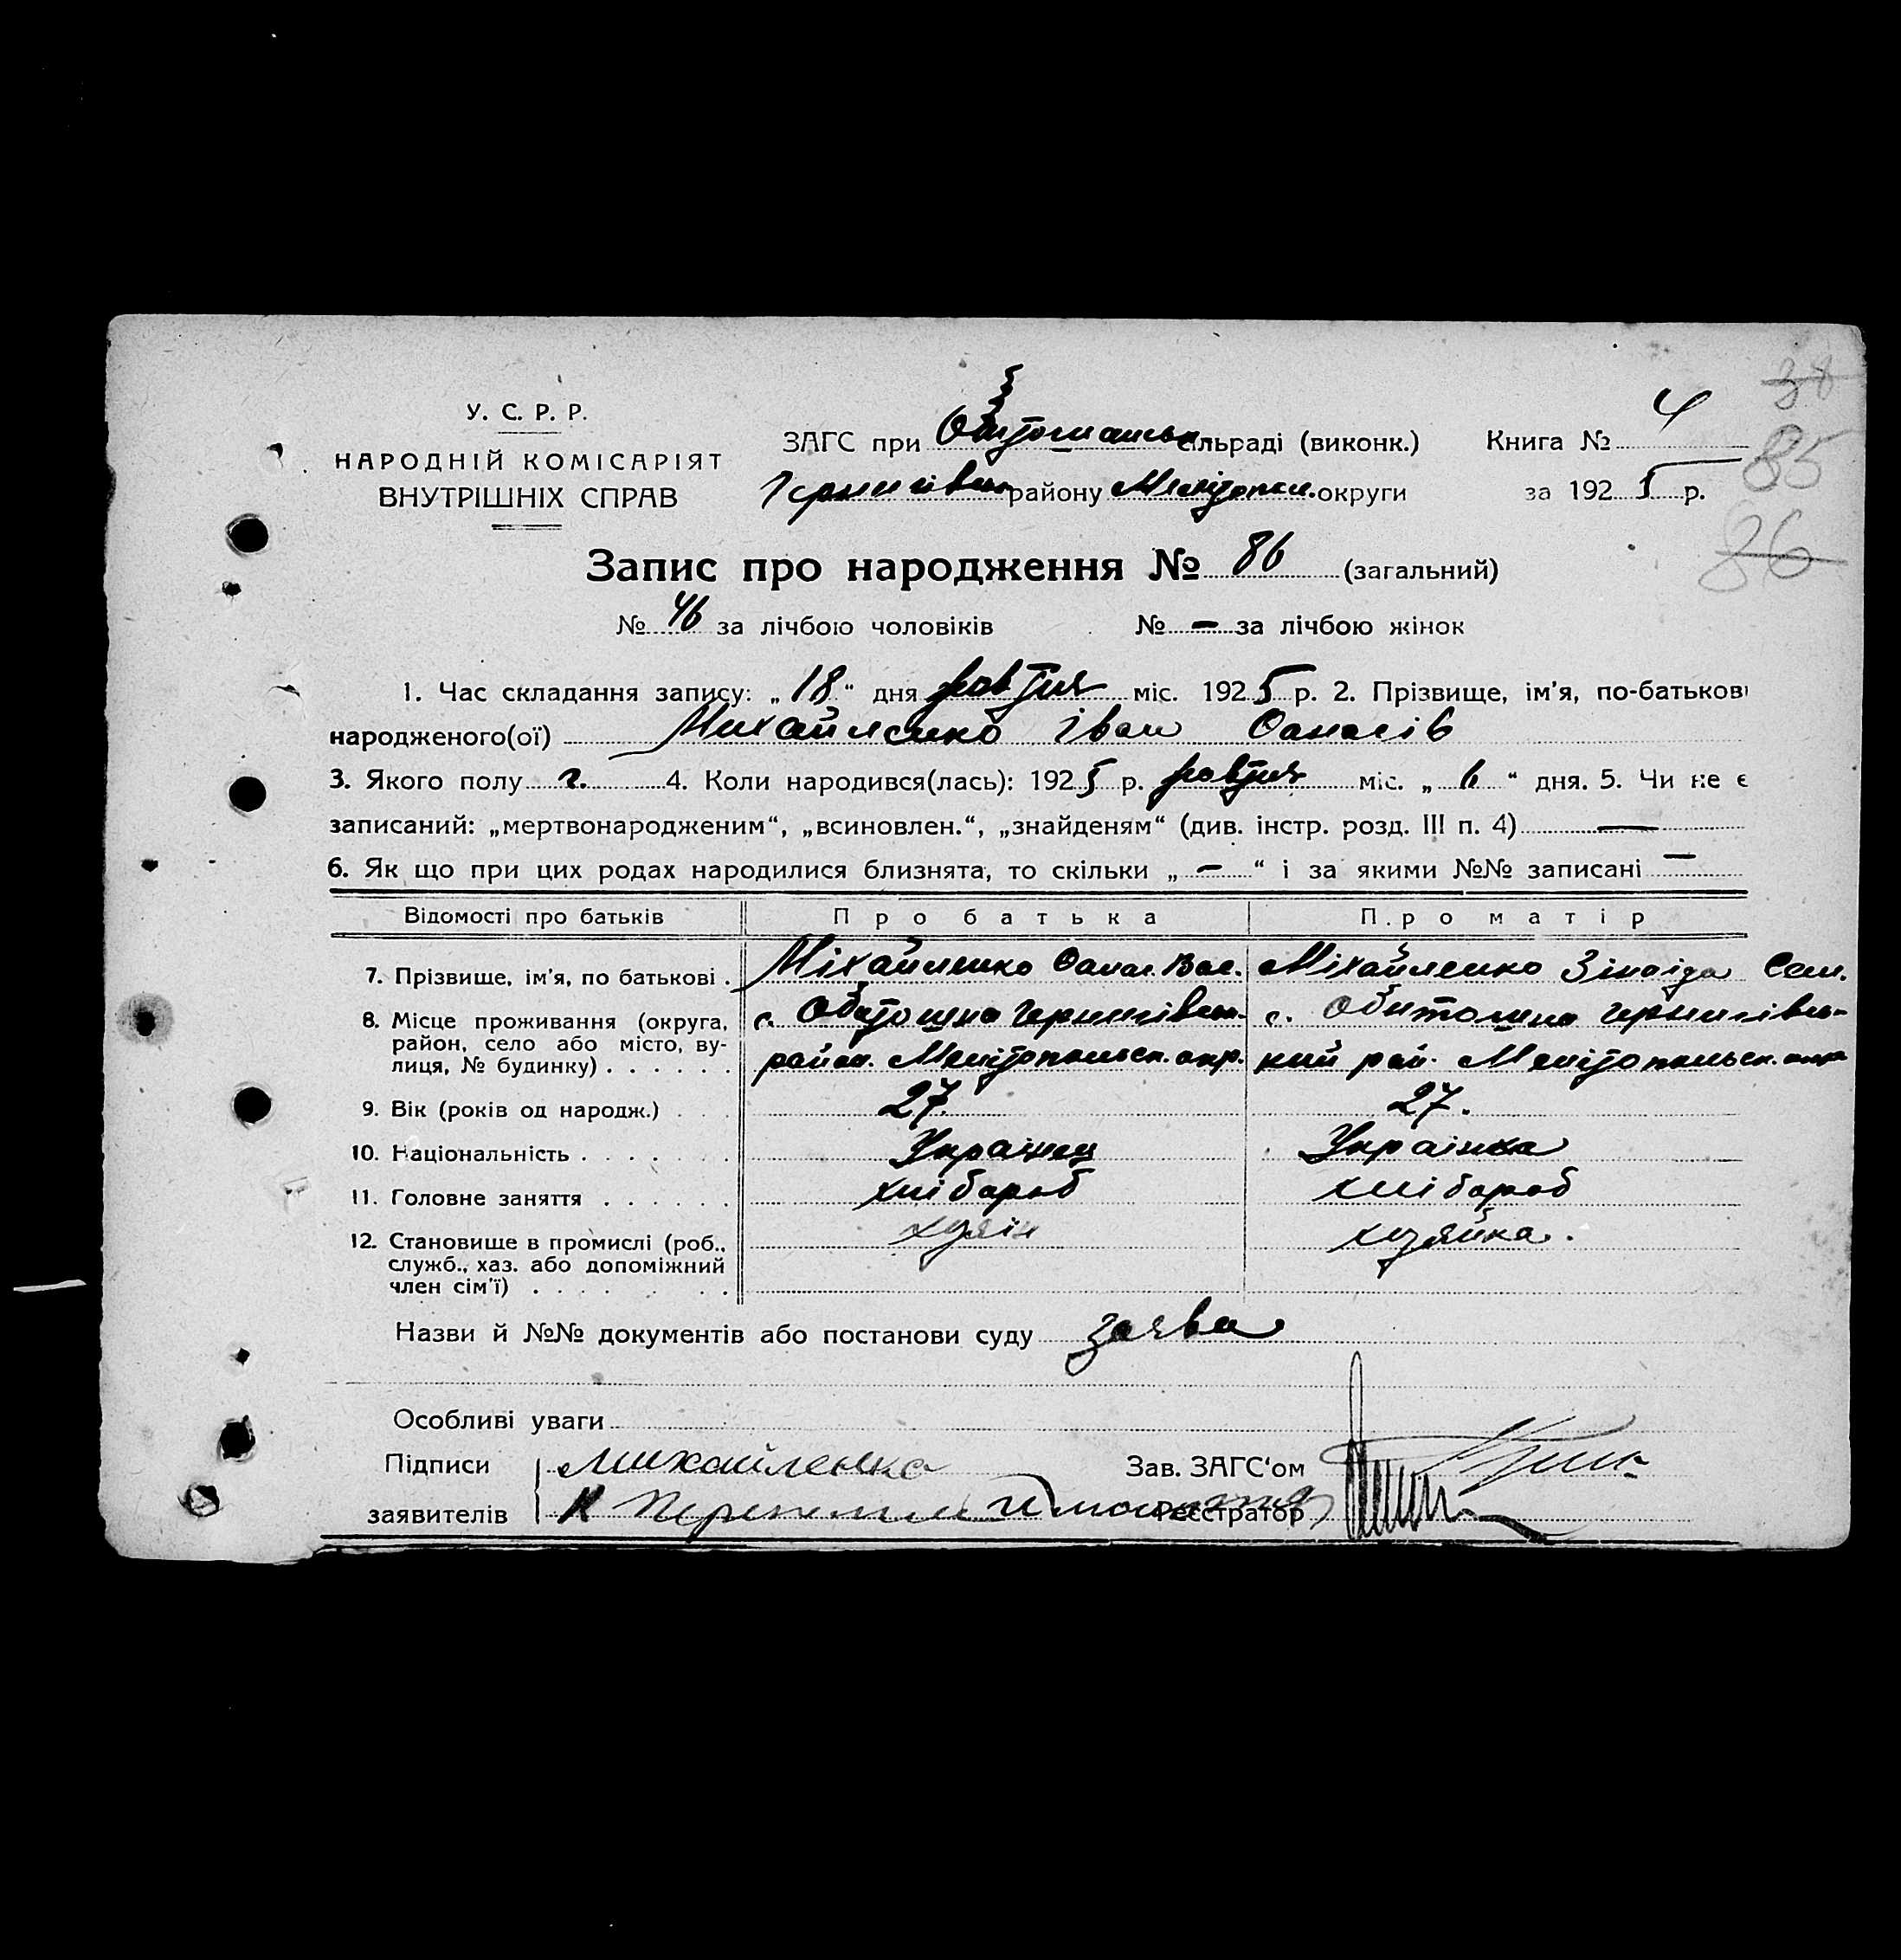 38
У. С. Р. Р.
НАРОДНІЙ КОМІСАРІЯТ
ВНУТРІШНІХ СПРАВ
ЗАГС при сільраді (виконк.) Книга № 4
85
району Мелітопол. округи за 1925 р.
86
Запис про народження № 86 (загальний)
№ 46 за лічбою чоловіків № — за лічбою жінок
1. Час складання запису: „18“ дня жовтня міс. 1925 р. 2. Прізвище, ім'я, по-батькові
народженого(ої) Михайленко Іван Оанасів
3. Якого полу ч. 4. Коли народився(лась): 1925 р. жовтня міс. „6“ дня. 5. Чи не є
записаний: „мертвонародженим“, „всиновлен.“, „знайденям“ (див. інстр. розд. III п. 4) —
6. Як що при цих родах народилися близнята, то скільки „—“ і за якими №№ записані —
Відомості про батьків Про батька Про матір
7. Прізвище, ім'я, по батькові . Міхайленко Оанас. Вас. Міхайленко Зінаіда Сем.
8. Місце проживання (округа, район, село або місто, вулиця, № будинку) . . . . . . с. Обитошна Чернигівськ. район. Мелітопольск. окр. с. Обитошна Чернигівський рай. Мелітопольск. окр
9. Вік (років од народж.) . . . 27. 27.
10. Національність . . . . . . . Українец Українка
11. Головне заняття . . . . . . хлібороб хлібороб
12. Становище в промислі (роб., служб., хаз. або допоміжний член сім'ї) . . . . . . . хузяін хузяйка.
Назви й №№ документів або постанови суду заява
Особливі уваги
Підписи Михайленко Зав. ЗАГС'ом
заявителів К Реєстратор